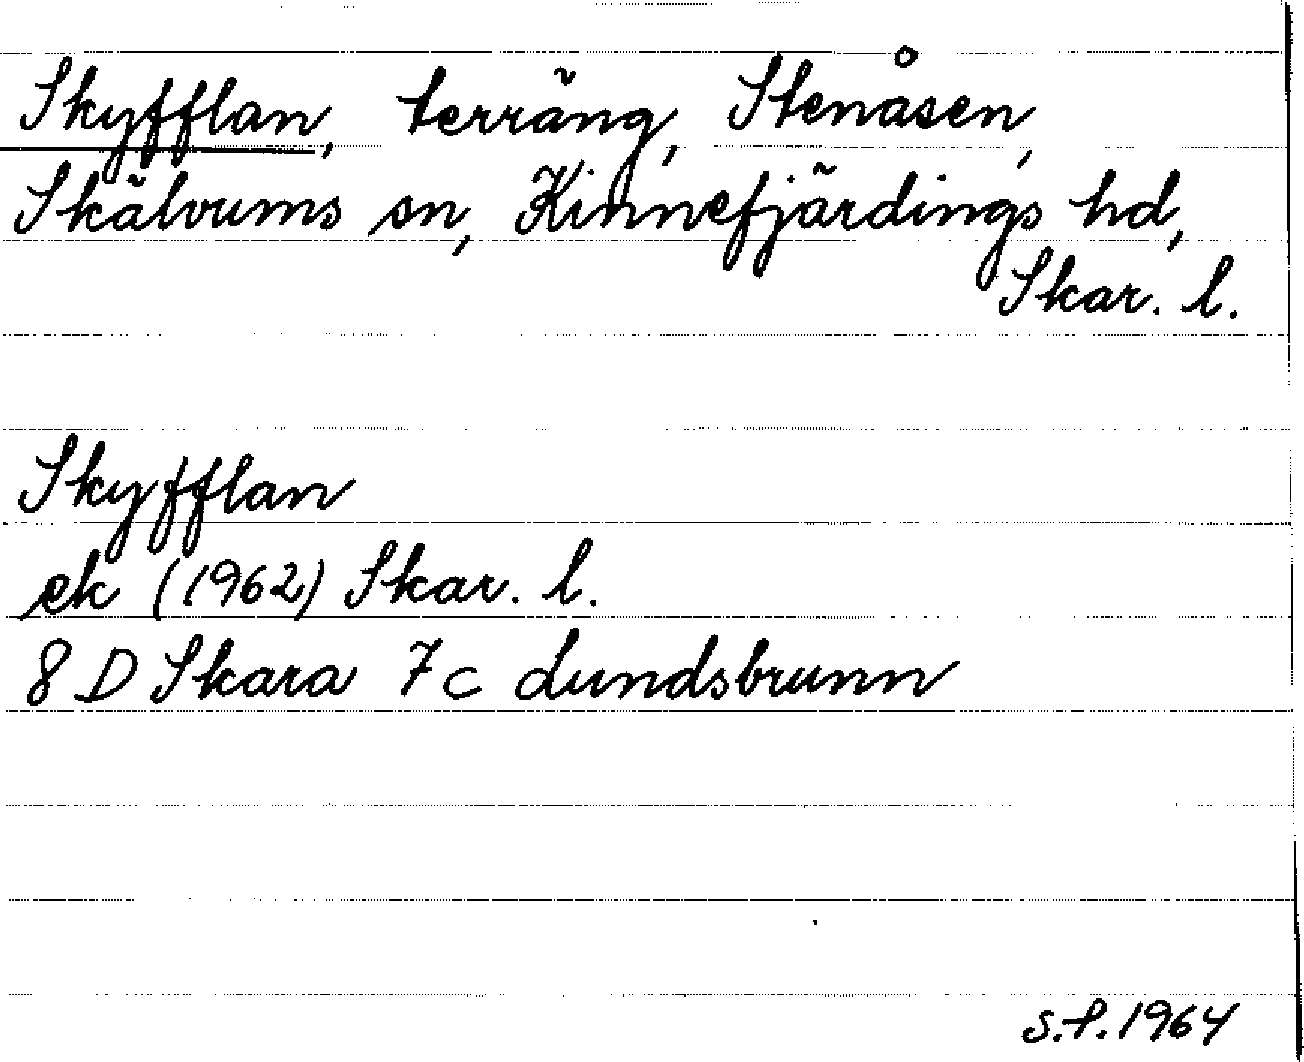 Skyfflan, terräng, Stenåsen,
Skälvums sn, Kinnefjärdings hd,
Skar. l.
Skyfflan
ek (1962) Skar. l.
8 D Skara 7c Lundsbrunn
S.P. 1964